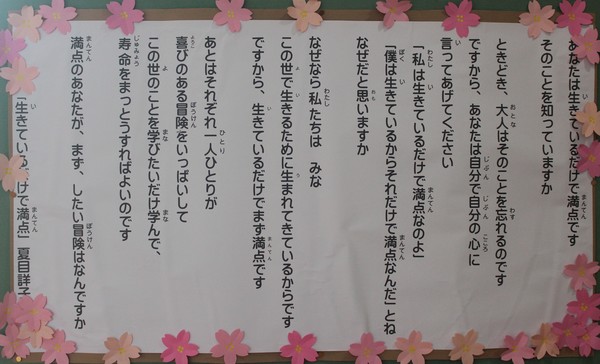 あなたは生きているだけで満点です
そのことを知っていますか
ときどき、大人はそのことを忘れるのです
ですから、あなたは自分で自分の心に
言ってあげてください
「私は生きているだけで満点なのよ」
「僕は生きているからそれだけで満点なんだ」とね
なぜだと思いますか
なぜなら私たちは みな
この世で生きるために生まれてきているからです
ですから、生きているだけでまず満点です
あとはそれぞれ一人ひとりが
喜びのある冒険をいっぱいして
この世のことを学びたいだけ学んで、
寿命をまっとうすればよいのです
満点のあなたが、まず、したい冒険はなんですか
「生きている けで満点」夏目詳子